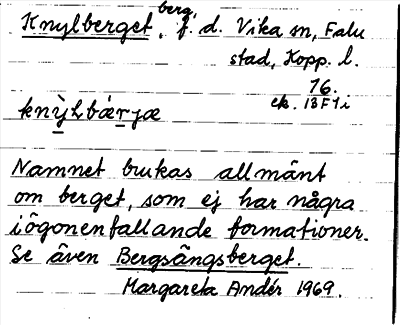 Knylberget, berg, f. d. Vika sn, Falu
stad, Kopp. l.
76.
ek. 13F1i
knỳLbær̲jæ
Namnet brukas allmänt
om berget, som ej har några
iögonenfallande formationer.
Se även Bergsängsberget.
Margareta Andér 1969.